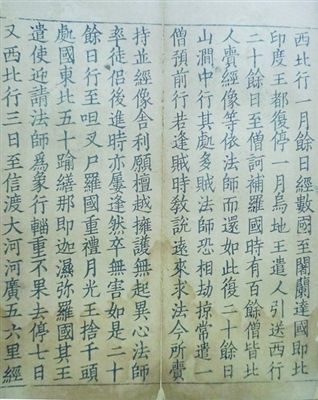 西北行一月餘日經數國至闍蘭達國即北
印度王都復停一月烏地王遣人引送西行
二十餘日至僧訶補羅國時有百餘僧皆北
人賷經像等依法師而還如此後二十餘日
山澗中行其處多賊法師恐相劫掠常遣一
僧預前行若逢賊時敎說遠來求法今所賷
持並經像舍利願檀越擁護無起異心法師
率徒侶後進時亦屢逢然卒無害如是二十
餘日行至呾叉尸羅國重禮月光王捨千頭
處國東北五十踰繕那即迦濕彌羅國其王
遣使迎請法師爲象行輜重不果去停七日
又西北行三日至信渡大河河廣五六里經